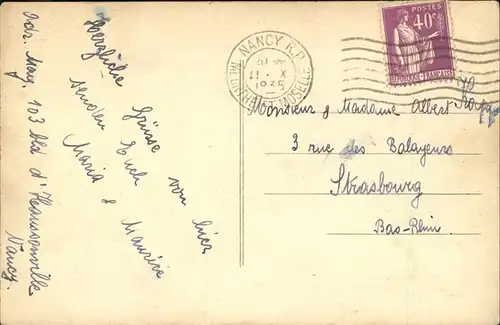 Herzliche
Grüsse von hier
senden Euch
Maria & Maurice
adr. May. 103 bld d'Haussonville
Nancy.
NANCY R.P.
11 X
1935
MEURTHE ET MOSELLE
POSTES
40c
REPUBLIQUE FRANÇAISE
Monsieur & Madame Albert Kopp
3 rue des Balayeurs
Strasbourg
Bas-Rhin